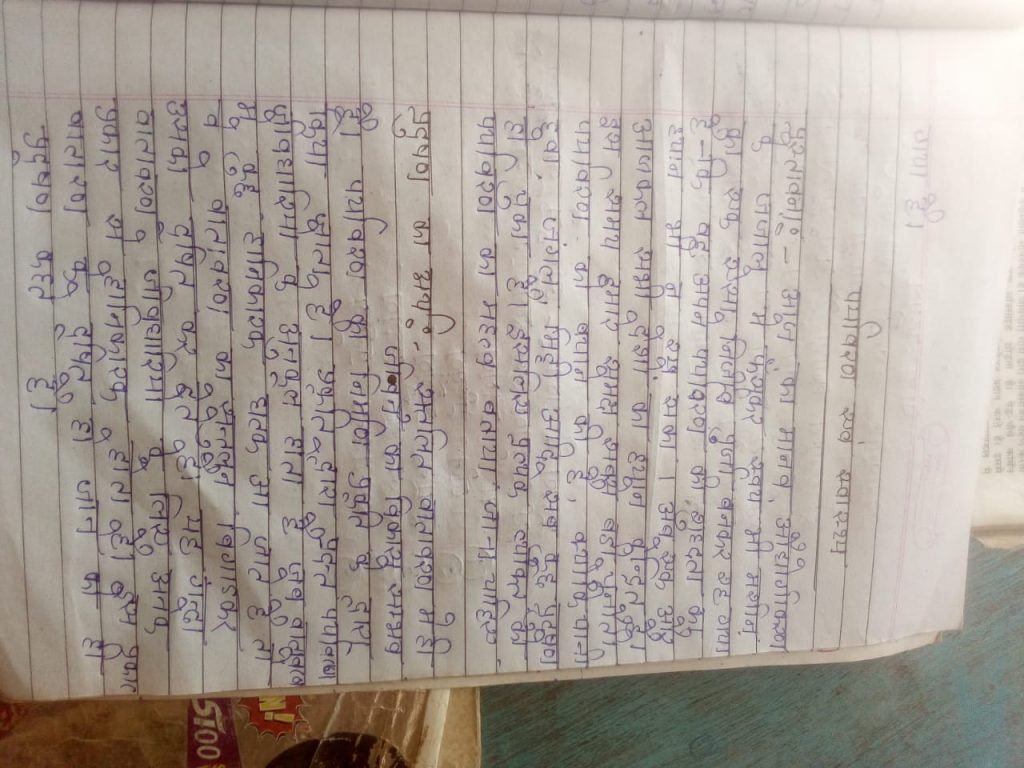 गया है।
पर्यावरण एवं स्वास्थ्य
प्रस्तावना:- का मानव, औद्योगीकरण
के जंजाल में फंसकर स्वयं भी मशीन
का एक ऐसा निर्जीव पुर्जा बनकर रह गया
है - कि वह अपने पर्यावरण की शुद्धता का
ध्यान भी न रख सका। अब एक और
आजकल सभी देशों का ध्यान
इस समय हमारे समक्ष सबसे बड़ी चुनौती
पर्यावरण को बचाने की है, क्योंकि पानी
हवा, जंगल, मिट्टी आदि सब कुछ प्रदूषण
हो चुका है। इसलिए प्रत्येक व्यक्ति को
पर्यावरण का महत्व बताया जाना चाहिए
प्रदूषण का अर्थ:- सन्तुलित वातावरण में ही
जीवन का विकास सम्भव
है। पर्यावरण का निर्माण प्रकृति के द्वारा
किया जाता है। प्रकृति द्वारा प्रदत्त पर्यावरण
जीवधारियों के अनुकूल होता है जब वातावरण
में कुछ हानिकारक घटक आ जाते हैं तो
वे वातावरण का सन्तुलन बिगाड़कर
उसको दूषित कर देते हैं। यह गन्दा
वातावरण जीवधारियों के लिए अनेक
प्रकार से हानिकारक होता है। इस प्रकार
वातावरण के दूषित हो जाने को ही
प्रदूषण कहते हैं।